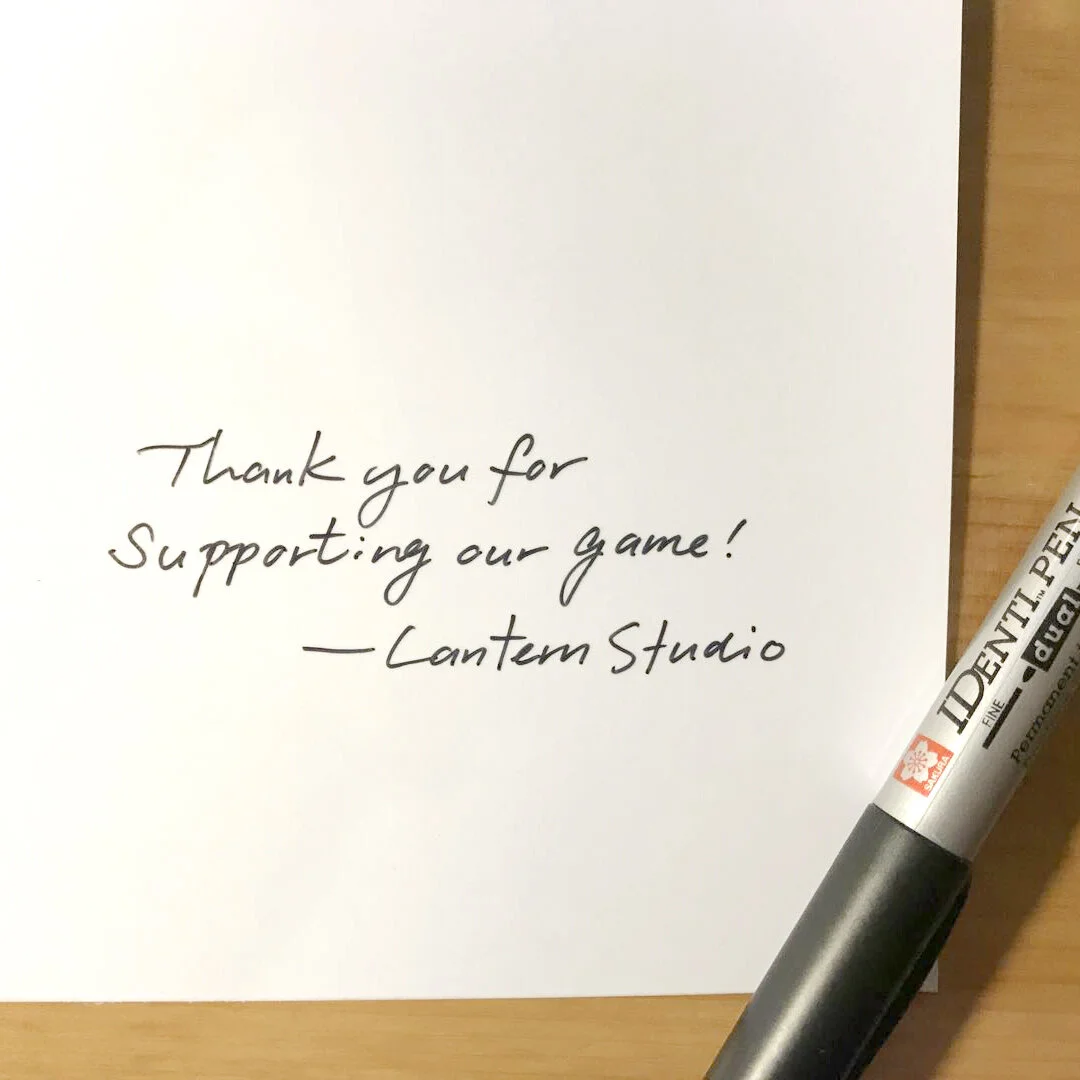 Thank you for
Supporting our game!
— Lantern Studio
IDENTI PEN
TM
dual
FINE
Permanent
SAKURA